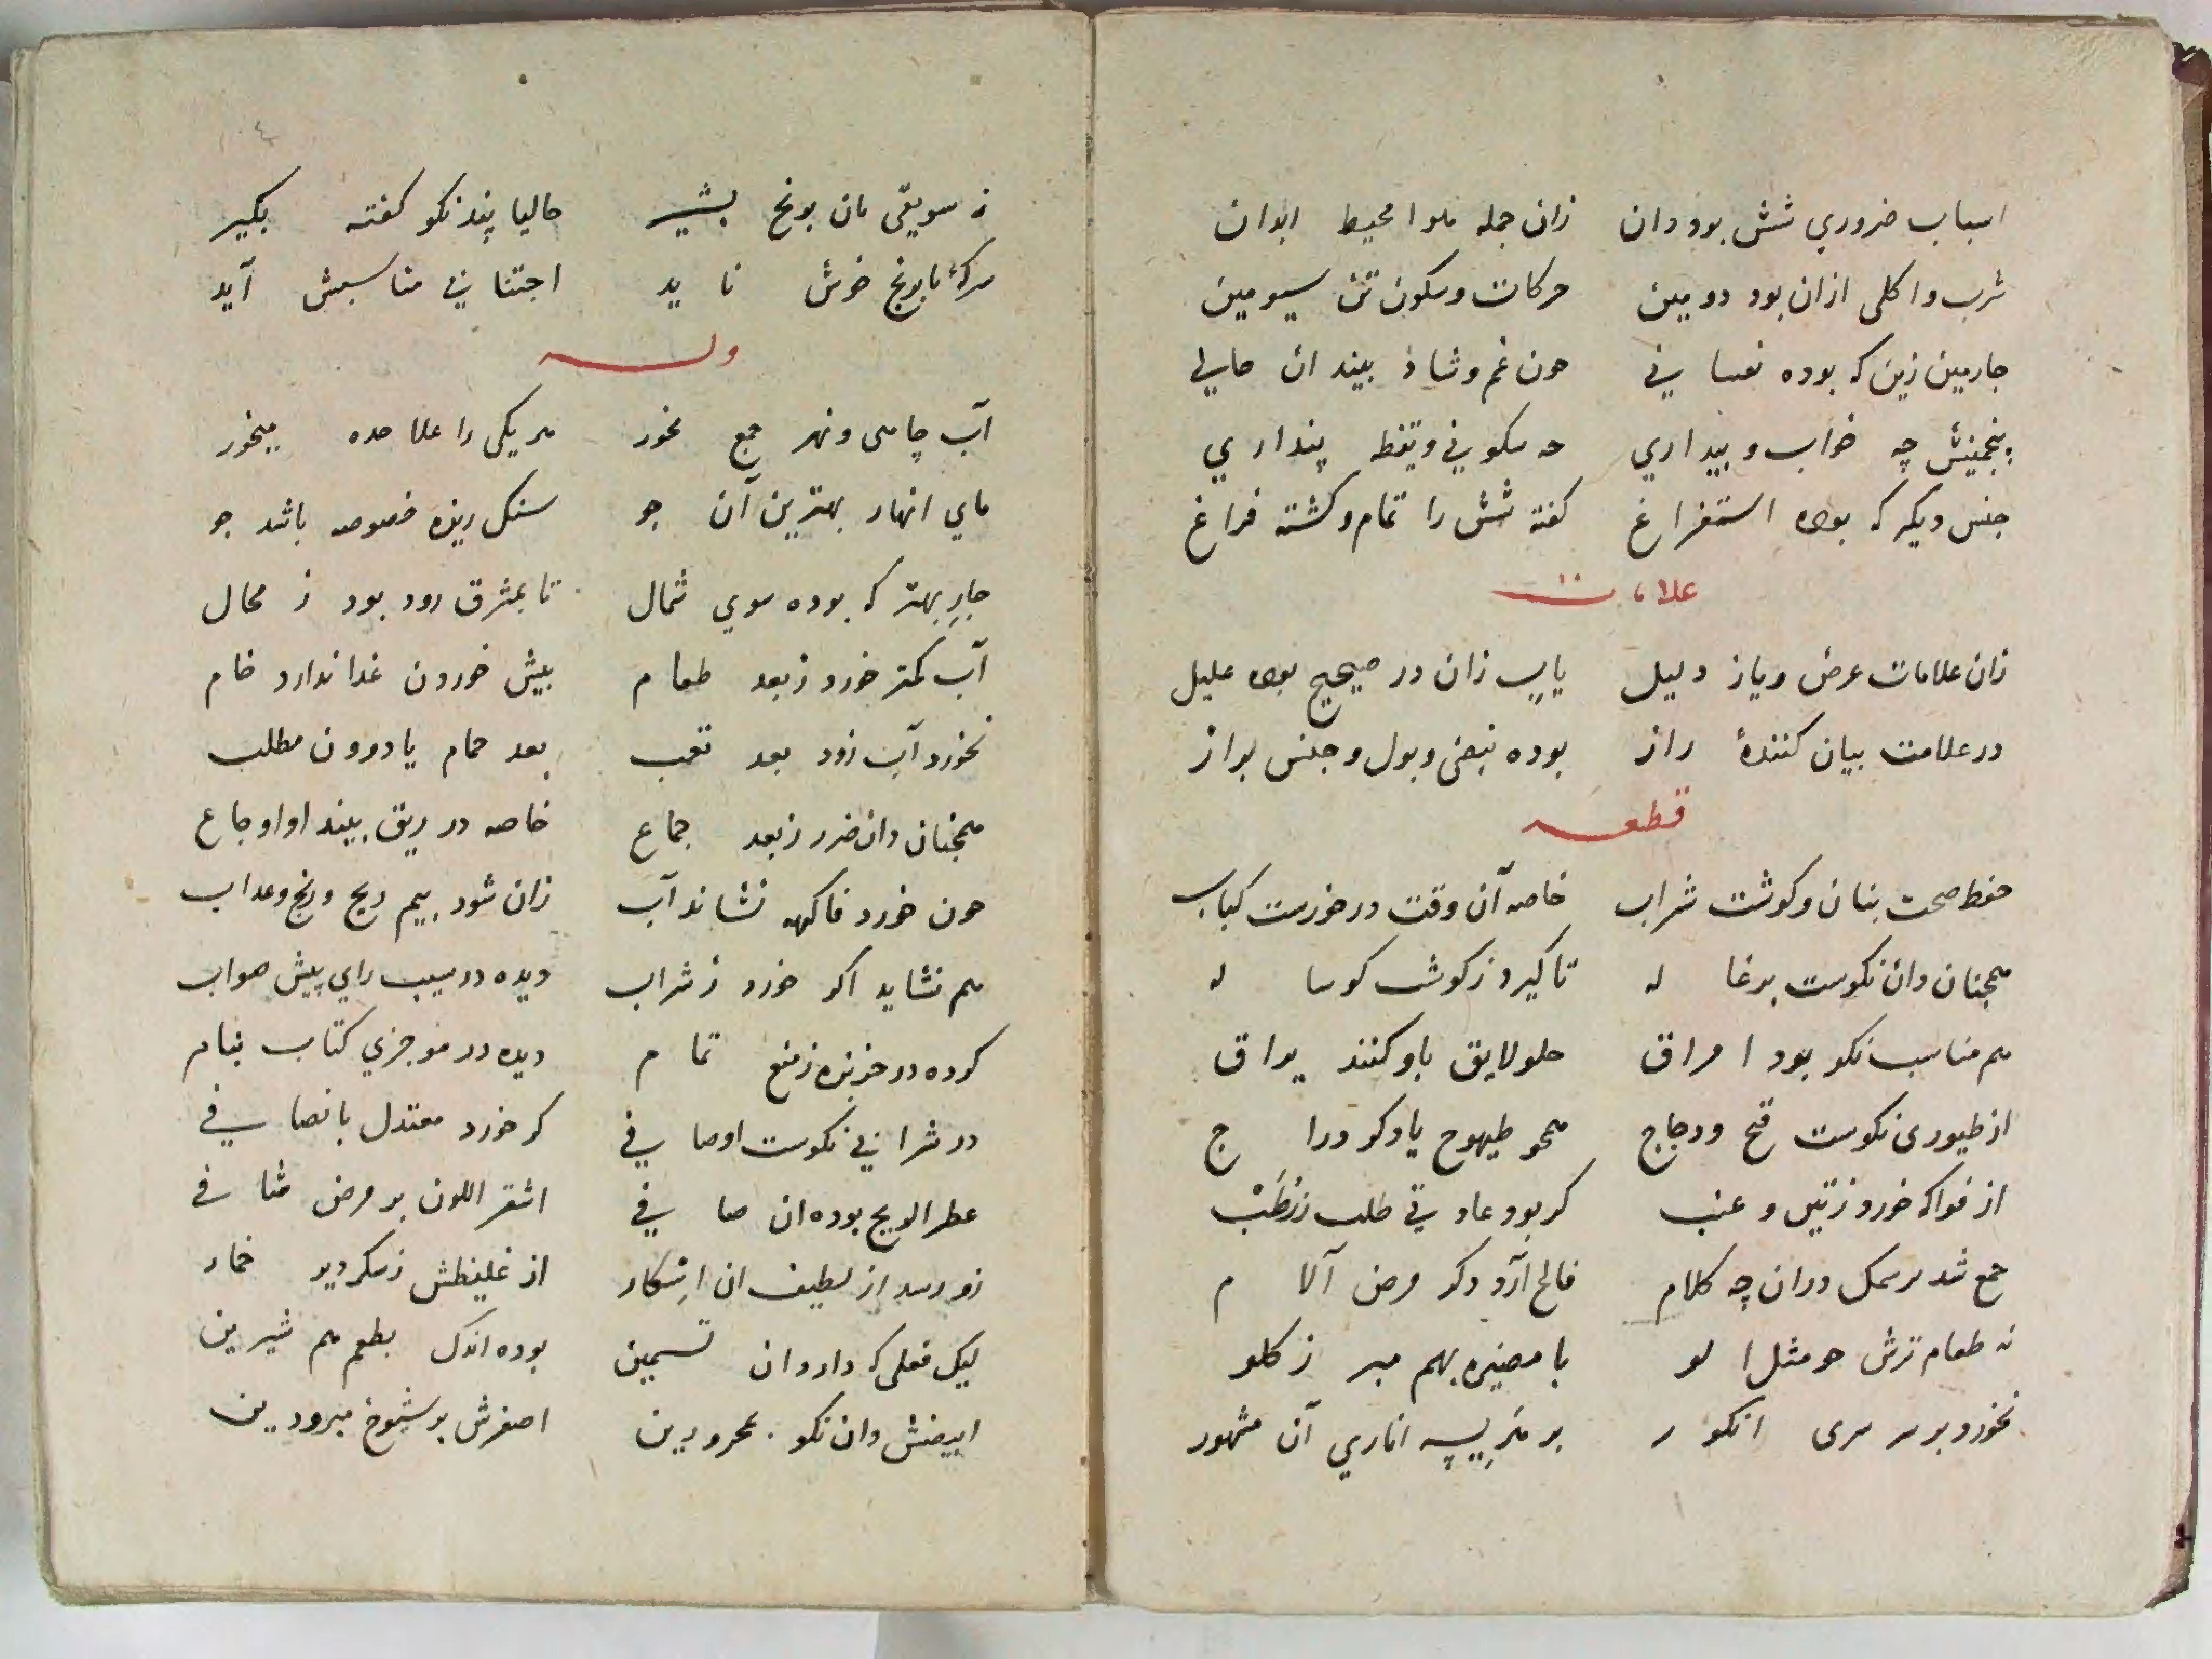 اسباب ضروري شش بود دان زان جمله هوا محیط ابدان
شرب و اکلی ازان بود دومین حرکات و سکون تن سیومین
جارمین زین که بوده نفسا ني حون غم و شاد بیند ان حالي
پنجمینش چه خواب و بیداري حه سکوني و یقظه پنداري
جنس دیکر که بوده استفراغ کفته شش را تمام و کشته فراغ
علامات
زان علامات عرض و یاز دلیل یابي زان در صحیح بوده علیل
در علامت بیان کنندهٔ راز بوده نبض و بول و جنس براز
قطعه
حفظ صحت بنان و کوشت شراب خاصه آن وقت درخورست کباب
همجنان دان نکوست بزغا له تا کیرد ز کوشت کوسا له
هم مناسب نکو بود امراق حلو لایق باو کنند یراق
از طیوری نکوست قبح و دجاج همحو طیهوج یا دکر درا ج
از فواکه خورد ز تین و عنب کر بود عاد تي طلب ز رُطَبْ
جمع شد هر سمک دران چه کلام فالج آرد دکر مرض آلا م
نه طعام ترش حو مثل الو با مضیره بهم مبر ز کلو
نخورد بر سر سری انکور بر هَرِیسِه اناري آن مشهور
نه سویقی بان برنج بشیر حالیا پند نکو کفته بکیر
سرکهٔ با برنج خوش نا ید اجتنا بي مناسبش آید
وله
آب چاهی و نهر جمع نخور هر یکی را علا حده میخور
ماي انهار بهترین آن جو سنک ریزه خصوصه باشد جو
جارِ بهتر که بوده سوي شمال تا بمشرق رود بود ز محال
آب کمتر خورد ز بعد طعام بیش خوردن غدا ندارد خام
نخورد آب زود بعد تعب بعد حمام یا درون مطلب
همجنان دان ضرر ز بعد جماع خاصه در ریق بیند او اوجاع
حون خورد فاکهه نشاند آب زان شود بیم ریح و رنج و عداب
هم نشاید اکر خورد ز شراب دیده در سیب راي پیش صواب
کرده در خربزه ز منع تما م دیده در موجزي کتاب بنام
در شرا بي نکوست اوصا في کر خورد معتدل بانصا في
عطر الریح بوده ان صا في اشقر اللون بر مرض شا في
زو رسد از لطیف ان اِسْکار از غلیظش ز سکر دیر خمار
لیک فعلی که دارد ان تسمین بوده اندک بطعم هم شیرین
ابیضش دان نکو بمحرورین اصفرش بر شیوخ مبرودین